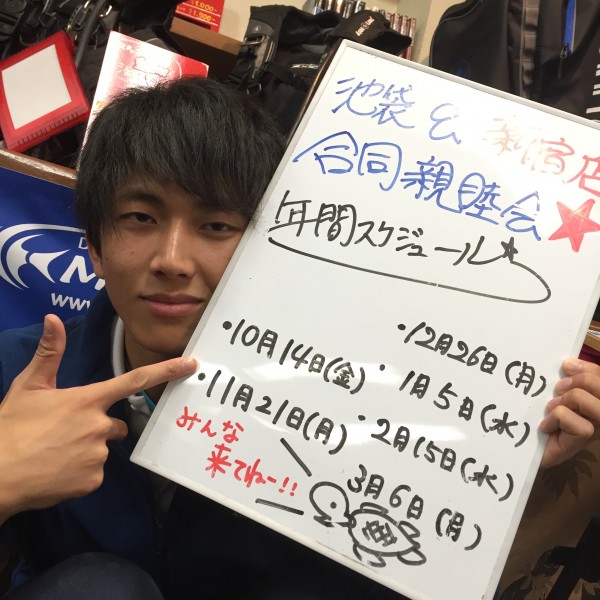 池袋 & 新宿店
合同親睦会★
年間スケジュール★
・10月14日(金)
・11月21日(月)
・12月26日(月)
・1月5日(水)
・2月15日(水)
3月6日(月)
みんな
来てねー!!
www.